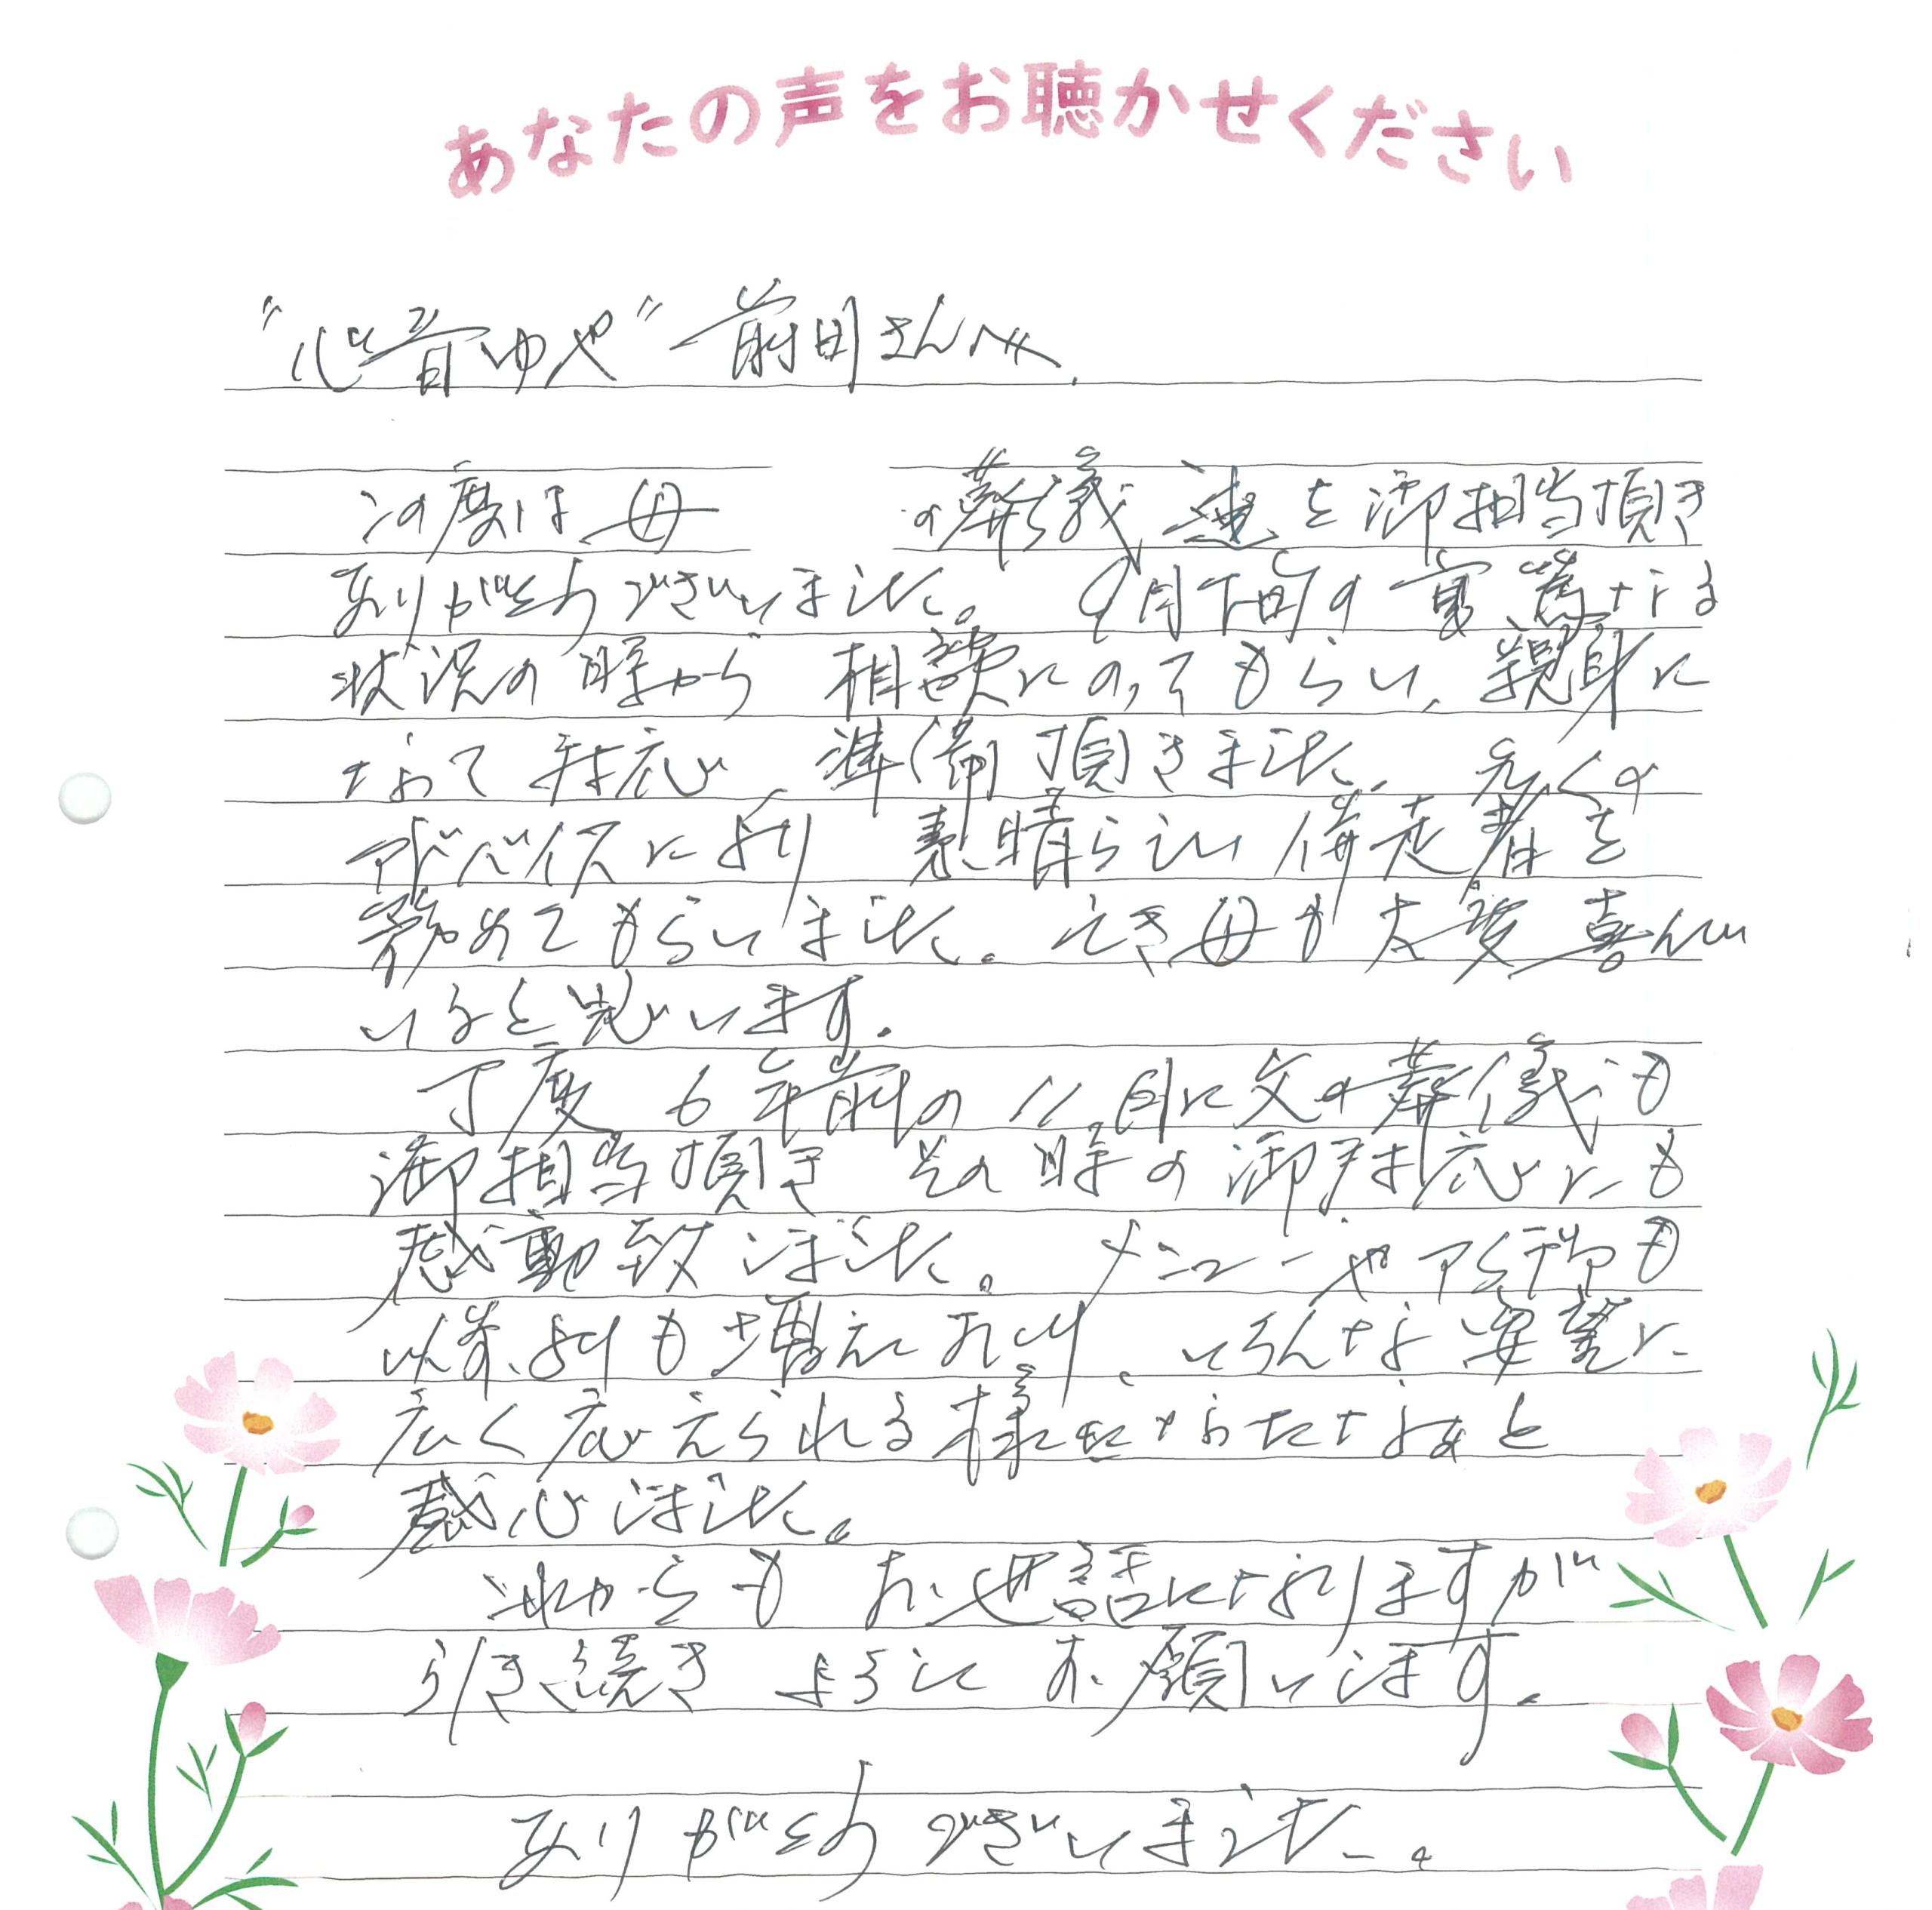 あなたの声をお聴かせください
"心音ゆや" 前田さんへ
この度は母 の葬儀、達を御担当頂き
ありがとうございました。 9月下旬の危篤なる
状況の時から 相談にのってもらい、親身に
なって対応、準備頂きました。多くの
アドバイスにより 素晴らしい伴走者を
務めてもらいました。 亡き母も大変喜んで
いると思います。
丁度 6年前の11月に父の葬儀も
御担当頂き その時の御対応にも
感動致しました。 メニューや も
以前よりも増えており、いろんな要望に
広く応えられる様になったなぁと
感心しました。
これからも お世話になりますが
引き続き よろしく お願いします。
ありがとうございました。